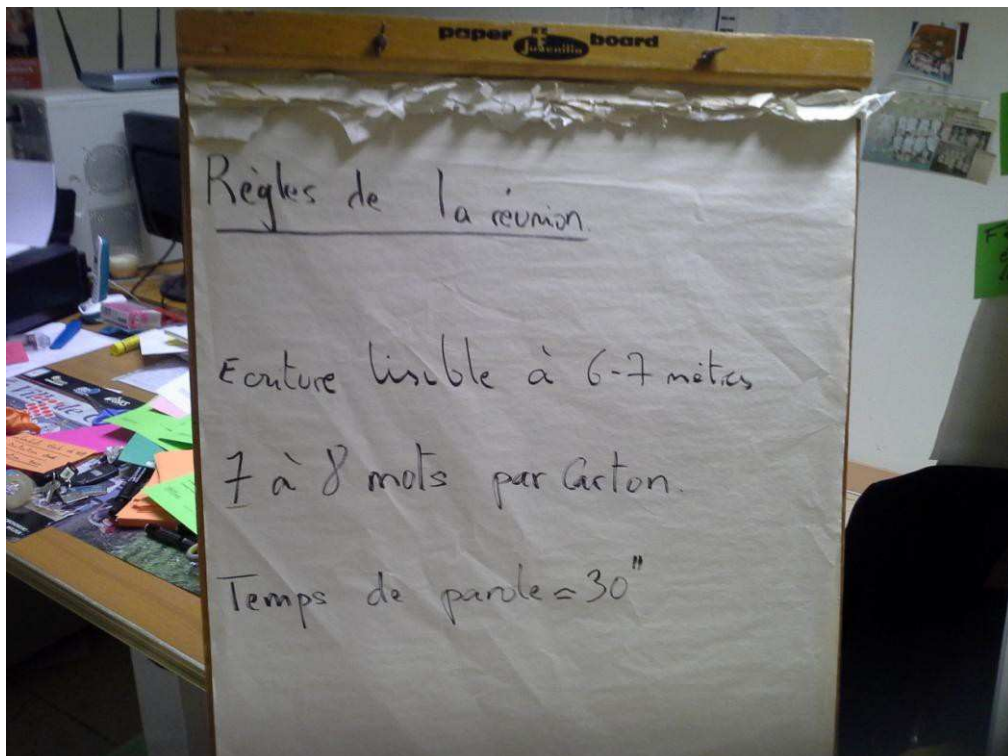 paper Juvenilia board
Règles de la réunion.
Ecriture lisible à 6-7 mètres
7 à 8 mots par Carton.
Temps de parole = 30"